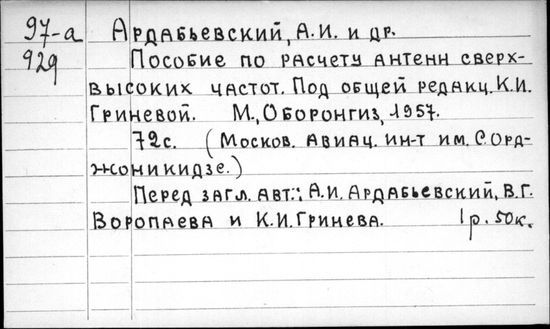 97-а Ардабьевский, А.И. и др.
929 Пособие по расчету антенн сверх-
высоких частот. Под общей редакц. К.И.
Гриневой. М., Оборонгиз, 1957.
72с. (Москов. авиац. ин-т им. С. Орд-
жоникидзе.)
Перед загл. авт.: А.И. Ардабьевский, В.Г.
Воропаева и К.И. Гринева. 1р. 50к.